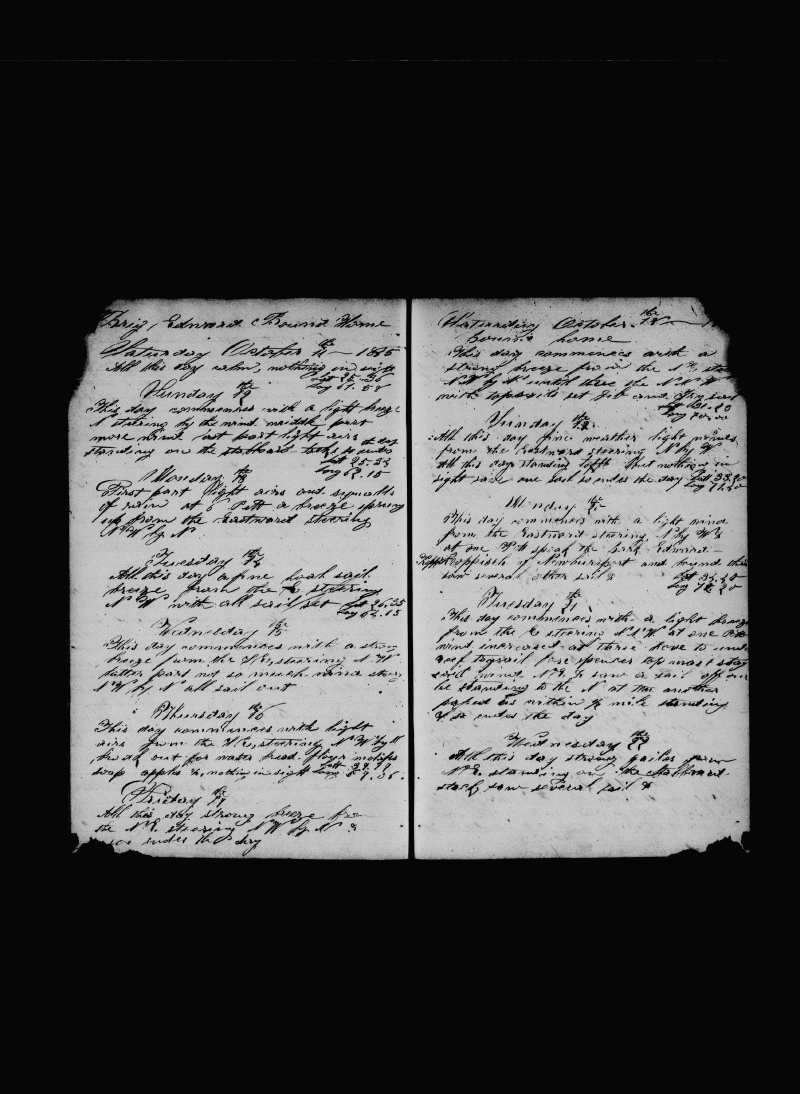 Brig Edward Bound Home
Saturday October 11th 1845
All this day calm, nothing in sight
Lat 25-30
Long 61.50
Sunday 12th
This day commences with a light breeze
N steering by the wind middle part
more wind last part light airs
standing on the starboard tack so ends the day
Lat 25-33
Long 62.15
Monday 13th
First part light airs and squalls
of rain at 8 PM a breeze spring
up from the Eastward steering
NW by N
Tuesday 14th
All this day a fine
breeze from the steering
NW with all sail set Lat 26,35
Long 64.15
Wednesday 15th
This day commences with a strong
breeze from the NE, steering NW
latter part not so much wind steer
NW by N all sail out
Thursday 16th
This day commences with light
airs from the steering NW by N
out for water bread flour
soap apples &c, nothing in sight
Friday 17th
All this day strong breeze from
the NE steering NW by N &
so ends the day
Saturday October 18th
bound home
This day commences with a
strong breeze from the NE
NW by N until three the NNW
with topsails set jib and try sail
Sunday 19th
All this day fine weather light winds
from the Eastward steering N by W
All this day standing off but nothing in
sight save one sail so ends the day Lat 33.20
Long 71.20
Monday 20th
This day commences with a light wind
from the Eastward steering N by W &
at one PM spoak the Bark Edward
Koppisch of Newburyport and beyond this
saw several other sail &
Tuesday 21st
This day commences with a light breeze
from the E steering at one PM
wind increased at three hove to under
reef topsail fore spencer top mast stay
sail wind NE & saw a sail off our
lee standing to the N at another
passed us within ½ mile standing
& so ends the day
Wednesday 22
All this day strong gailes from
NE standing on the starboard
tack saw several sail &